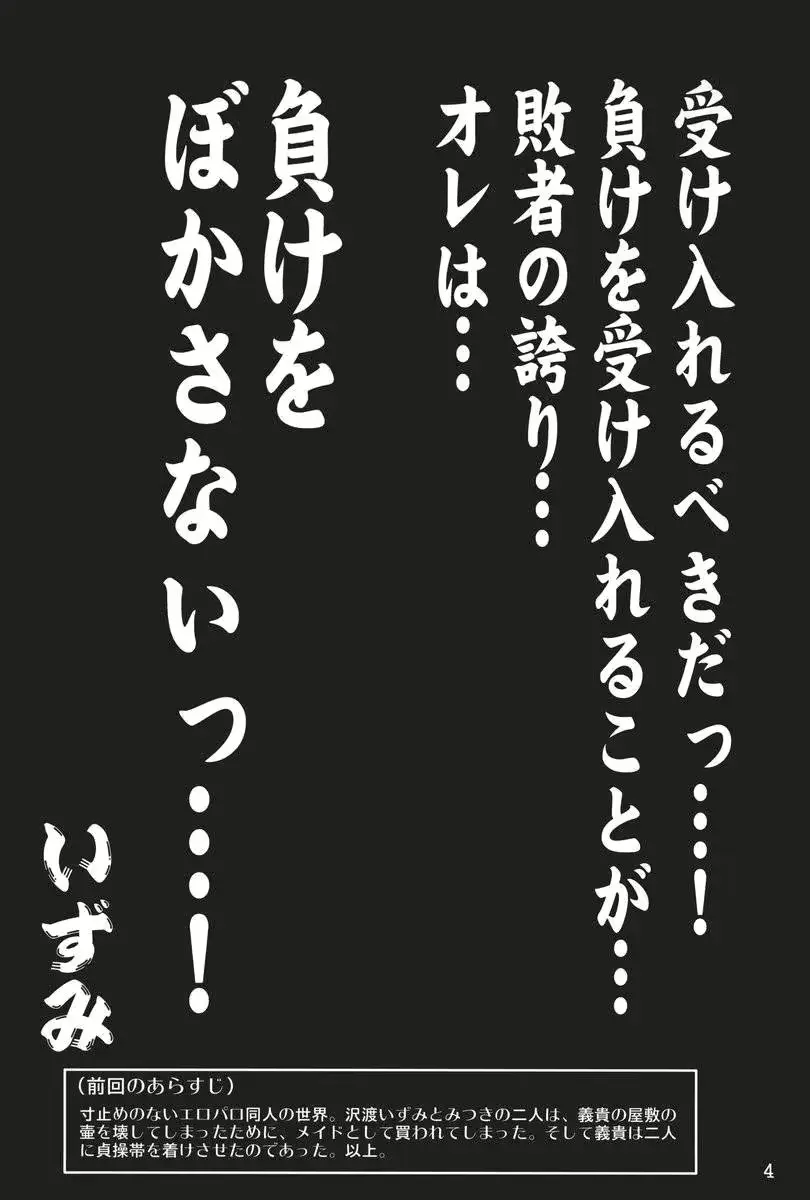 受け入れるべきだっ…！
負けを受け入れることが…
敗者の誇り…
オレは…
負けを
ぼかさないっ……！
いずみ
（前回のあらすじ）
寸止めのないエロパロ同人の世界。沢渡いずみとみつきの二人は、義貴の屋敷の
壷を壊してしまったために、メイドとして買われてしまった。そして義貴は二人
に貞操帯を着けさせたのであった。以上。
4